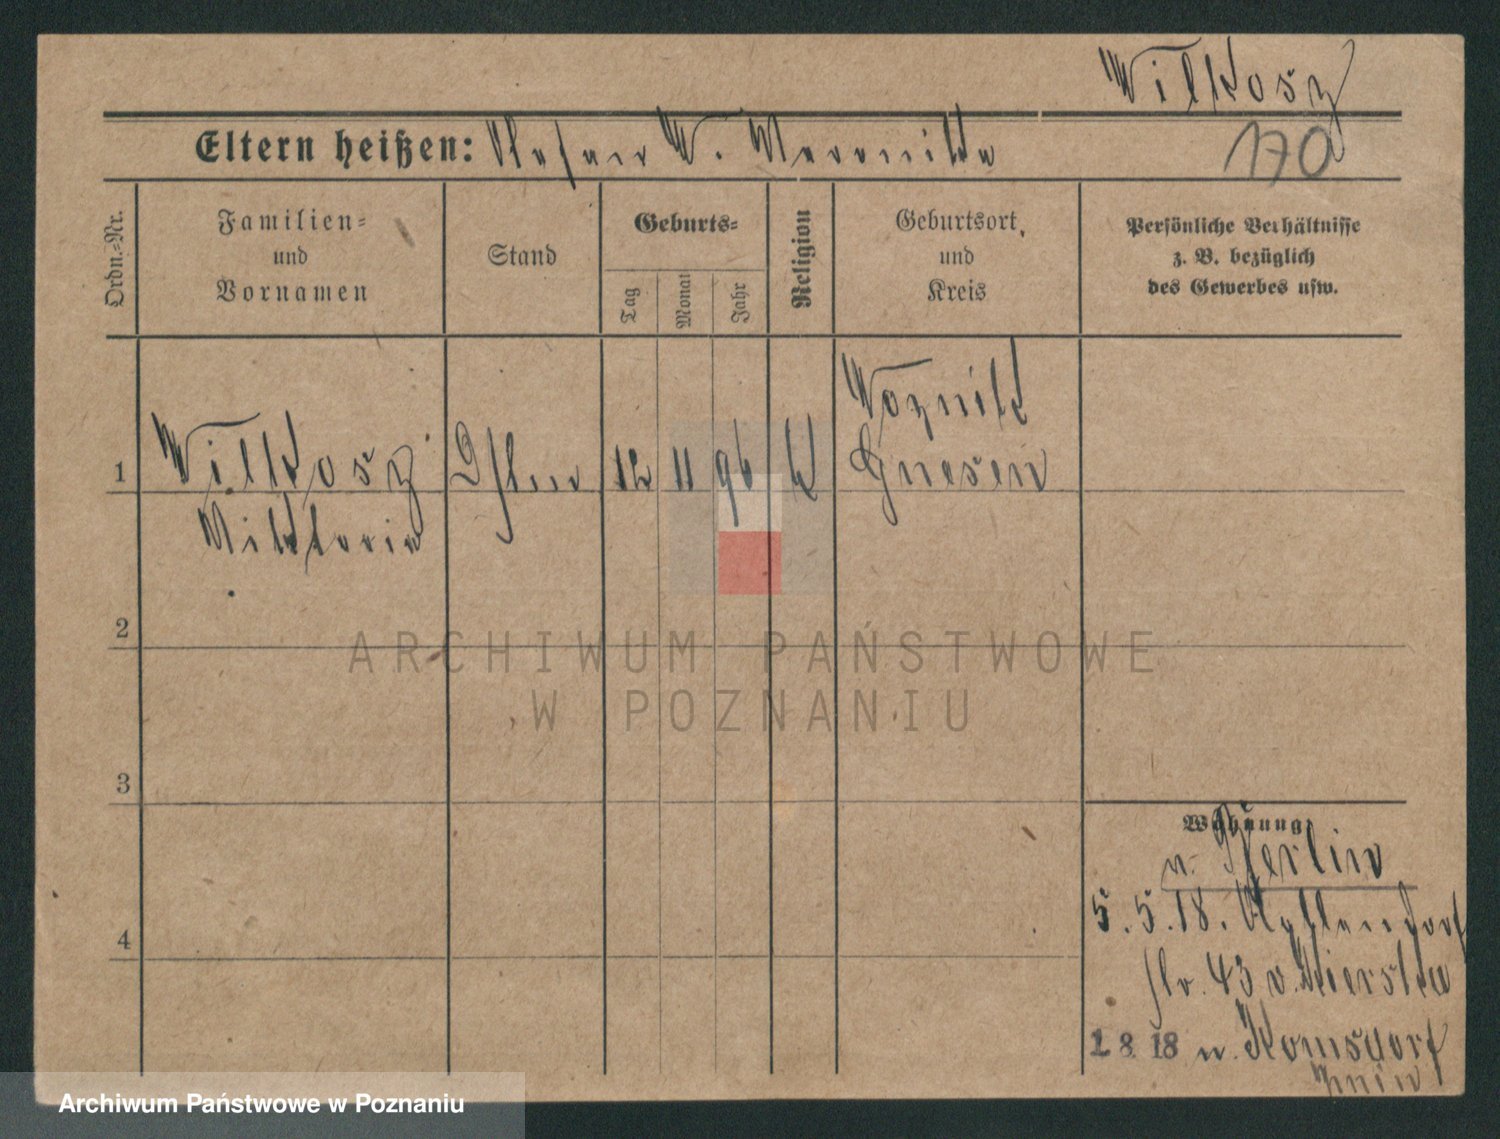 Wilkosz
Eltern heißen: Stefan W. Weronika
170
Ordn.=Nr.
Familien=
und
Vornamen
Stand
Geburts=
Tag
Monat
Jahr
Religion
Geburtsort,
und
Kreis
Persönliche Verhältnisse
z. B. bezüglich
des Gewerbes usw.
1
Wilkosz
Wiktoria
12 11 96 k
Woznik
Gnesen
2
3
4
Wohnung:
v. Berlin
5.5.18.
str. 43 v.
1 8 18 n. Komsdorf
Znin
ARCHIWUM PAŃSTWOWE
W POZNANIU
Archiwum Państwowe w Poznaniu